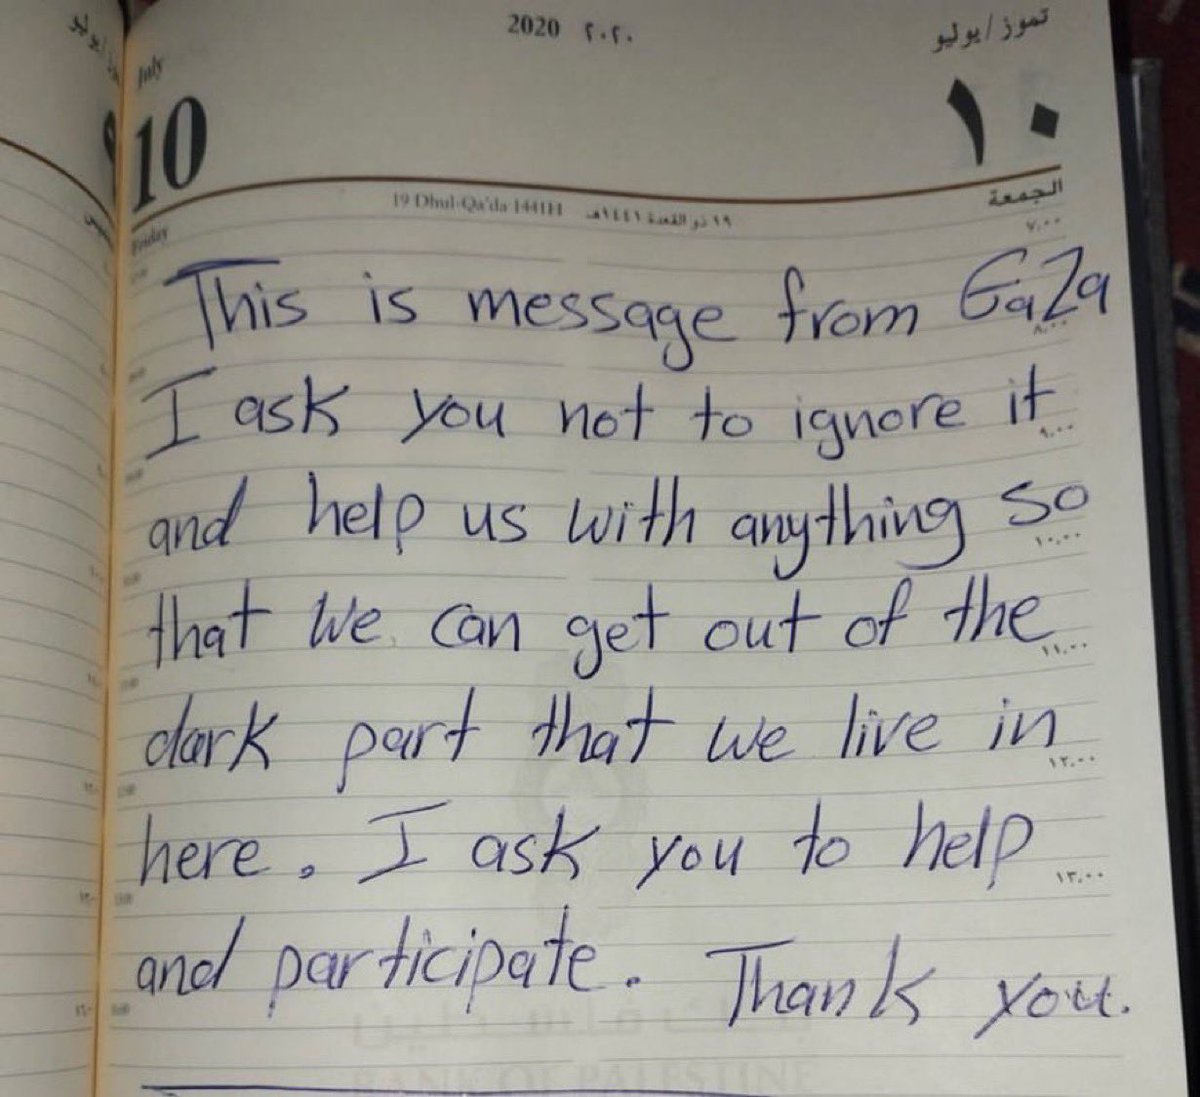 2020 ٢٠٢٠
تموز/يوليو
July
10
١٠
19 Dhul-Qa'da 1441H ١٩ ذو القعدة ١٤٤١هـ
الجمعة
Friday
٧,٠٠
This is message from GaZa
٨,٠٠
I ask you not to ignore it
٩,٠٠
and help us with anything so
١٠,٠٠
that we can get out of the
١١,٠٠
dark part that we live in
١٢,٠٠
here. I ask you to help
١٣,٠٠
and participate. Thank you.
BANK OF PALESTINE